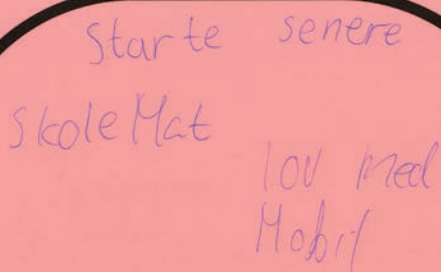 Starte senere
SkoleMat
lov med
Mobil